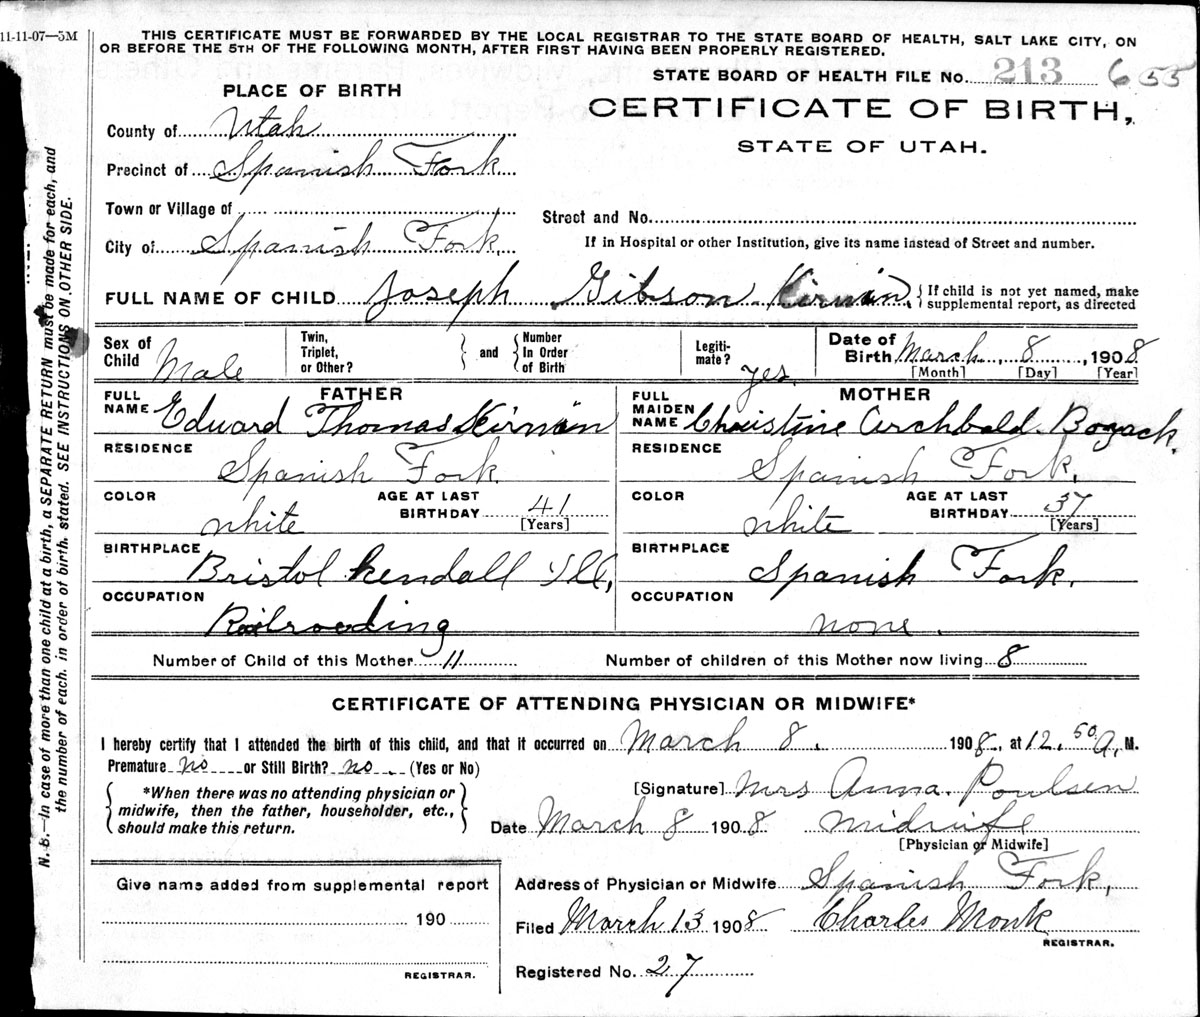 11-11-07—5M
THIS CERTIFICATE MUST BE FORWARDED BY THE LOCAL REGISTRAR TO THE STATE BOARD OF HEALTH, SALT LAKE CITY, ON
OR BEFORE THE 5TH OF THE FOLLOWING MONTH, AFTER FIRST HAVING BEEN PROPERLY REGISTERED.
STATE BOARD OF HEALTH FILE NO. 213 655
PLACE OF BIRTH
CERTIFICATE OF BIRTH,
STATE OF UTAH.
County of Utah
Precinct of Spanish Fork
Town or Village of
Street and No.
City of Spanish Fork
If in Hospital or other Institution, give its name instead of Street and number.
FULL NAME OF CHILD Joseph Gibson Kirwin. { If child is not yet named, make
supplemental report, as directed
Sex of Child Male
Twin, Triplet, or Other? } and { Number In Order of Birth
Legitimate? yes.
Date of Birth March 8, 1908
[Month] [Day] [Year]
FATHER
FULL NAME Edward Thomas Kirwin
RESIDENCE
Spanish Fork.
COLOR white
AGE AT LAST BIRTHDAY 41
[Years]
BIRTHPLACE
Bristol Kendall Ill,
OCCUPATION
Railroading
MOTHER
FULL MAIDEN NAME Christine Archbald Bozack.
RESIDENCE
Spanish Fork.
COLOR white
AGE AT LAST BIRTHDAY 37
[Years]
BIRTHPLACE
Spanish Fork.
OCCUPATION
none.
Number of Child of this Mother 11
Number of children of this Mother now living 8
CERTIFICATE OF ATTENDING PHYSICIAN OR MIDWIFE*
I hereby certify that I attended the birth of this child, and that it occurred on March 8. 1908, at 12.50 A. M.
Premature no or Still Birth? no. (Yes or No)
{ *When there was no attending physician or
midwife, then the father, householder, etc.,
should make this return. }
[Signature] Mrs Anna Poulsen
Date March 8 1908 midwife
[Physician or Midwife]
Give name added from supplemental report
190
REGISTRAR.
Address of Physician or Midwife Spanish Fork,
Filed March 13 1908 Charles Monk
REGISTRAR.
Registered No. 27
N. B.—In case of more than one child at a birth, a SEPARATE RETURN must be made for each, and
the number of each, in order of birth, stated. SEE INSTRUCTIONS ON OTHER SIDE.